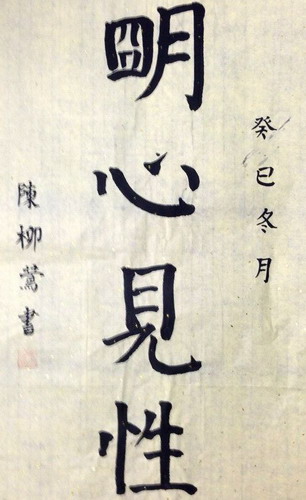 癸巳冬月
朙心見性
陳柳鶯書